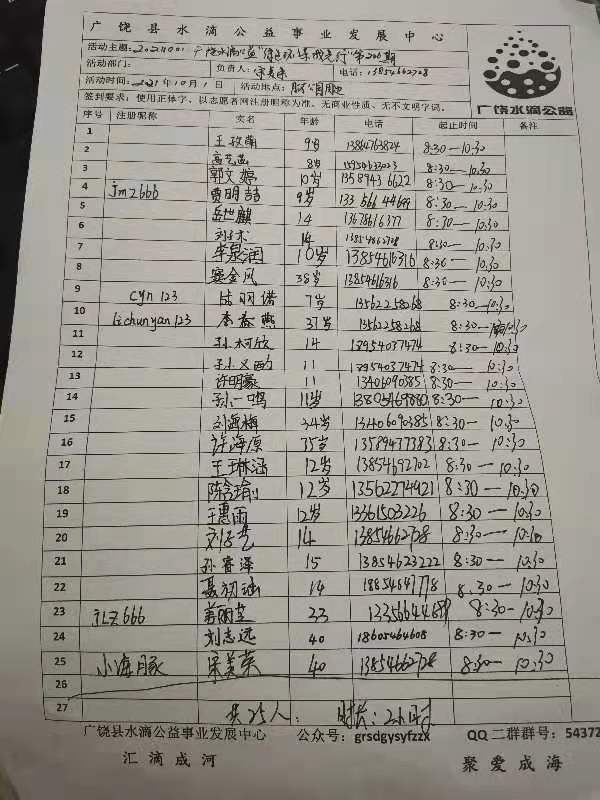 广饶县水滴公益事业发展中心
活动主题：2021001 广饶水滴公益"绿色环保我先行"第200期
活动部门： 负责人：宋美荣 电话：13854662728
活动时间：2021年10月1日 活动地点：
签到要求：使用正体字，以志愿者网注册昵称为准，无商业性质、无不文明字词。
广饶水滴公益
序号 注册昵称 实名 年龄 电话 起止时间 备注
1 王玫萌 9岁 13864763824 8:30—10:30
2 8岁 13954633023 8:30—10:30
3 郭文婷 10岁 13589436622 8:30—10:30
4 jmz666 贾明喆 9岁 13356644699 8:30—10:30
5 岳世麒 14 13678616377 8:30—10:30
6 14 13854662728 8:30—10:30
7 李泉润 10岁 13854616316 8:30—10:30
8 窦金凤 38岁 13854616316 8:30—10:30
9 cyn123 陈玥诺 7岁 13562258268 8:30—10:30
10 lichunyan123 李春燕 37岁 13562258268 8:30—10:30
11 孙柯欣 14 13954037474 8:30—10:30
12 11 13954037474 8:30—10:30
13 许明豪 11 13406090385 8:30—10:30
14 孙一鸣 11岁 13805469880 8:30—10:30
15 刘海梅 34岁 13406090385 8:30—10:30
16 许海原 35岁 13589477383 8:30—10:30
17 王琳涵 12岁 13854692702 8:30—10:30
18 陈含瑜 12岁 13562274921 8:30—10:30
19 王惠雨 12岁 13361503226 8:30—10:30
20 14 13854662728 8:30—10:30
21 孙睿泽 15 13854623222 8:30—10:30
22 聂初涵 14 18854641778 8:30—10:30
23 JLZ666 33 13356644699 8:30—10:30
24 刘志远 40 18605464608 8:30—10:30
25 小海豚 宋美荣 40 13854662728 8:30—10:30
26
27 共25人： 时长：2小时
广饶县水滴公益事业发展中心 公众号：grsdgysyfzzx QQ二群群号：54372
汇滴成河 聚爱成海